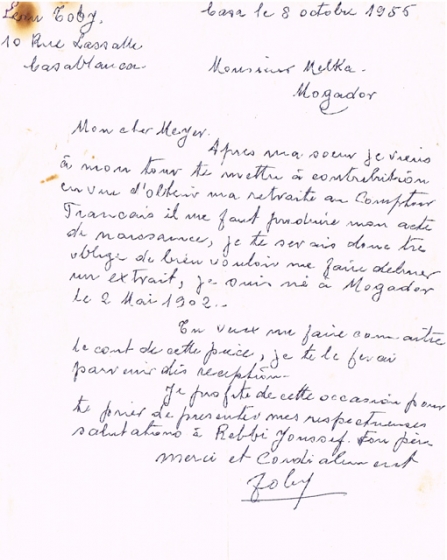 Léon Toby. Casa le 8 octobre 1955
10 Rue Lassalle
Casablanca. Monsieur Melka.
Mogador
Mon cher Meyer.
Après ma soeur je viens
à mon tour te mettre à contribution
en vue d'obtenir ma retraite au Comptoir
Francais il me faut produire mon acte
de naissance, je te serais donc très
obligé de bien vouloir me faire delivrer
un extrait, je suis né à Mogador
le 2 Mai 1902..
Tu veux me faire connaître
le cout de cette pièce, je te le ferai
parvenir dès réception.
Je profite de cette occasion pour
te prier de presenter mes respectueuses
salutations à Rebbi Youssef. ton père
Merci et Cordialement
Toby